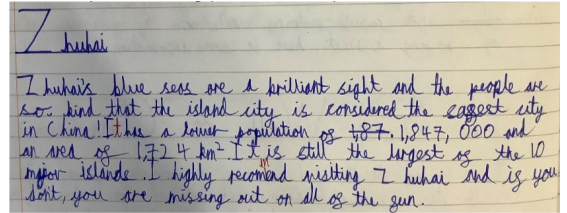 Zhuhai
Zhuhai's blue seas are a brilliant sight and the people are
so kind that the island city is considered the city
in China! It has a lower population of 1,87. 1,847,000 and
an area of 1,724 km². It is still the largest of the 10
major islands. I highly recommend visiting Zhuhai and if you
don't, you are missing out on all of the fun.